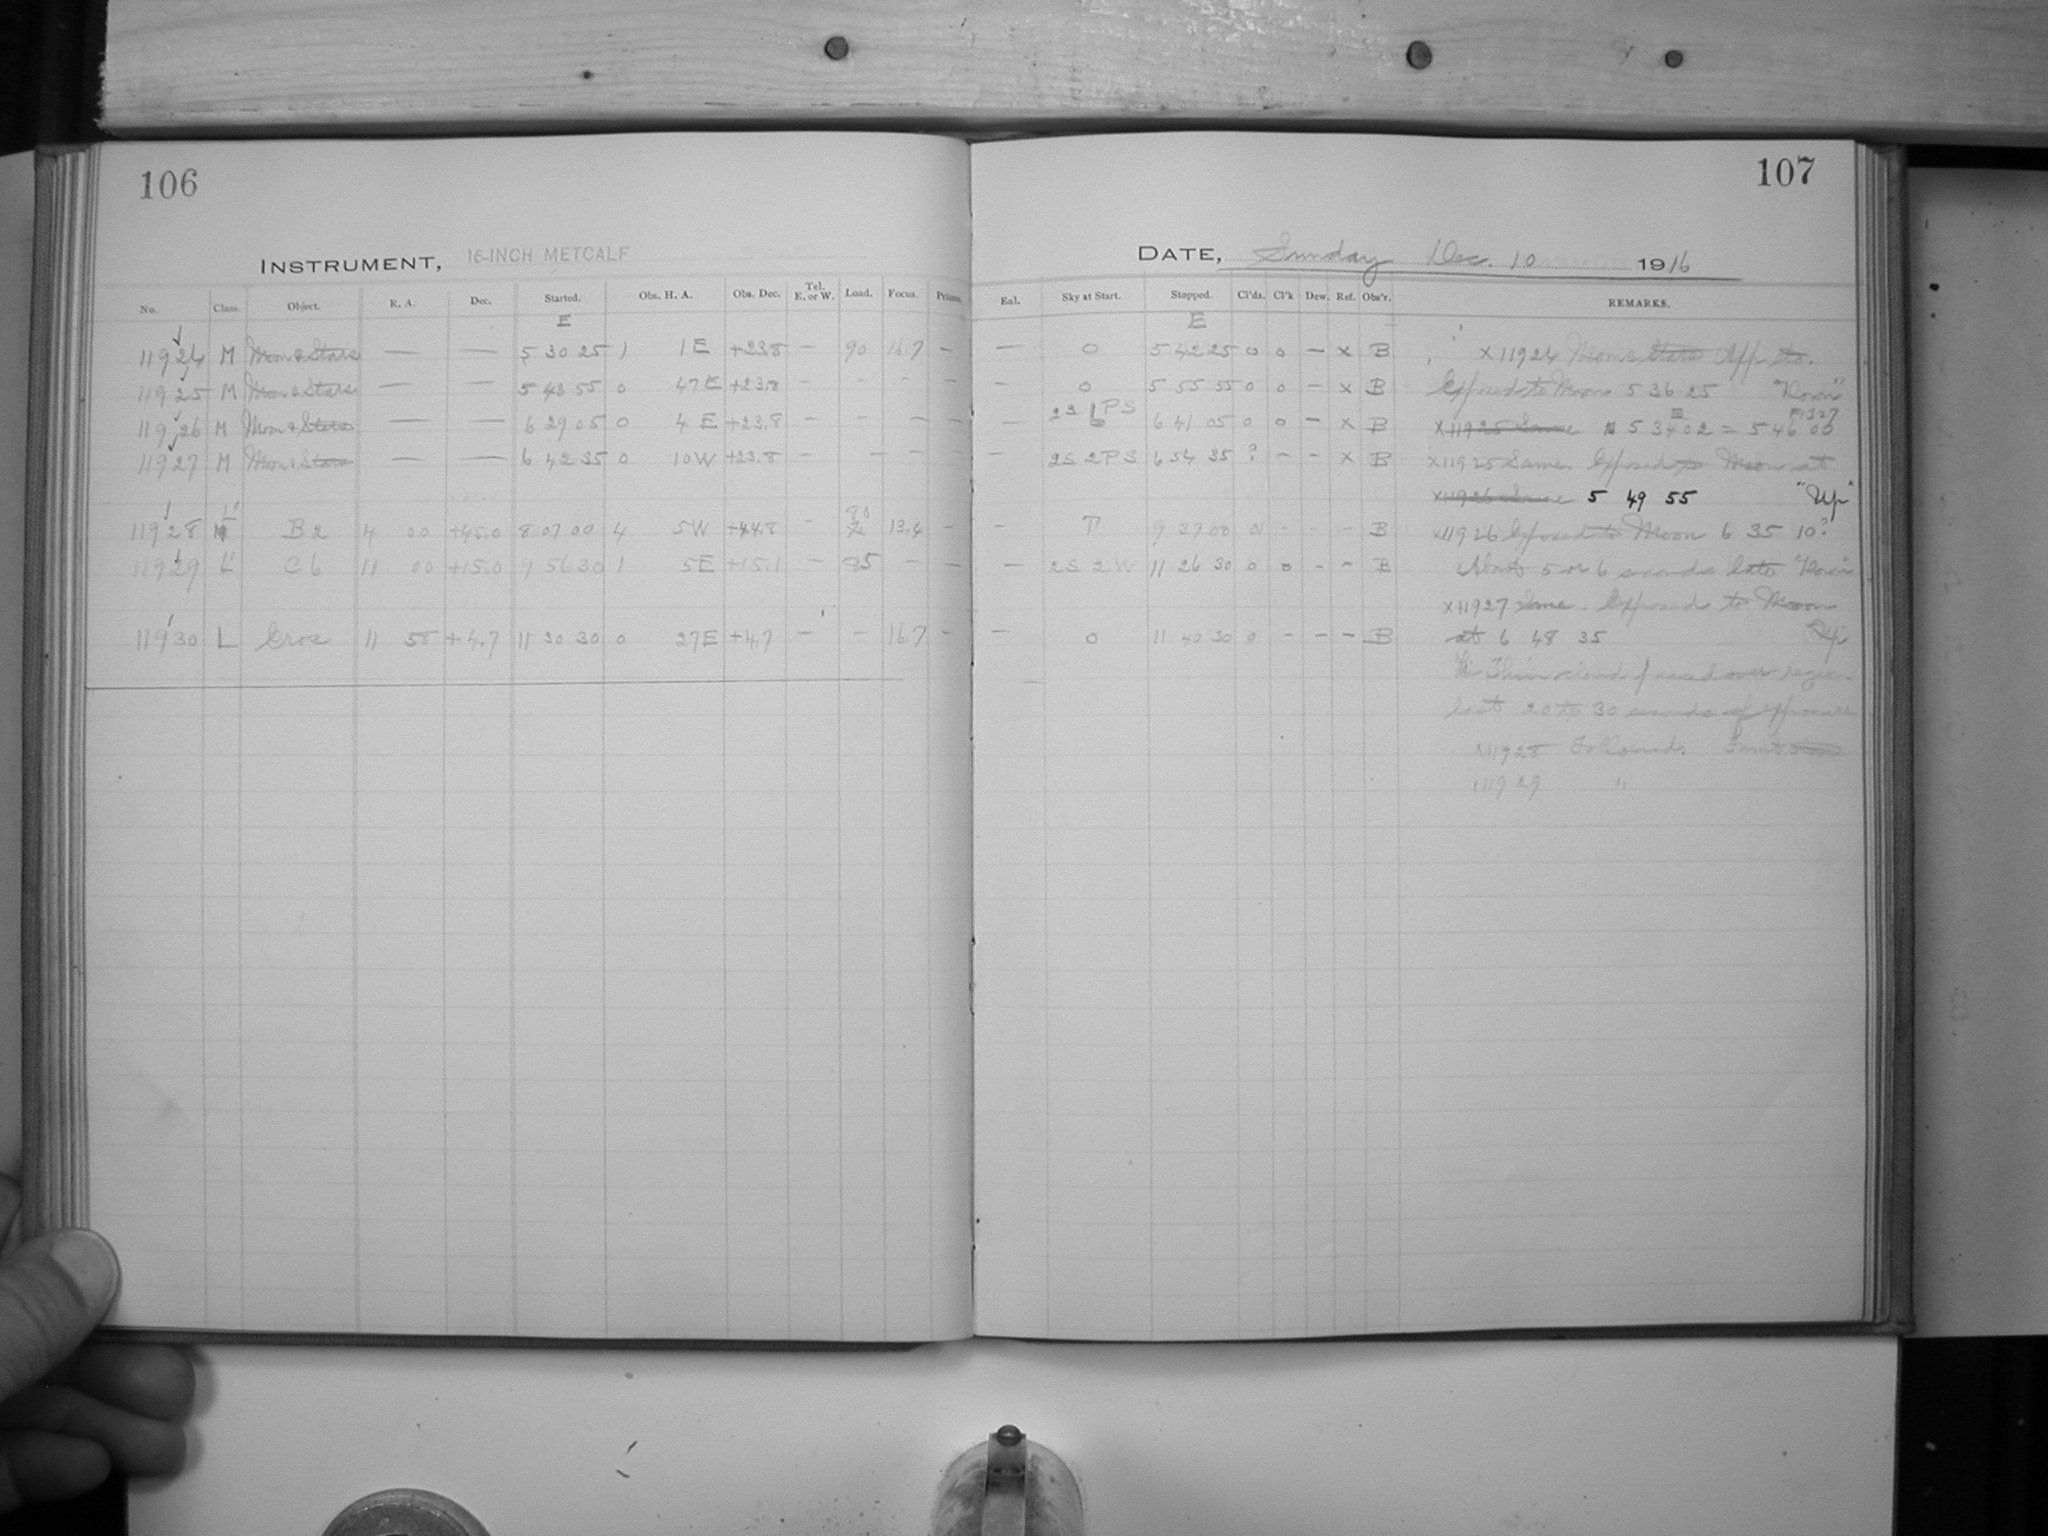 106
INSTRUMENT, 16-INCH METCALF
No. Class. Object. R. A. Dec. Started. Obs. H. A. Obs. Dec. Tel. E. or W. Load. Focus. Prisms.
E
11924 M Moon & Stars — — 5 30 25 1 1 E +23.8 — 90 16.7 —
11925 M Moon & Stars — — 5 43 55 0 47 E +23.8 - - - -
11926 M Moon & Stars — — 6 29 05 0 4 E +23.8 - - - -
11927 M Moon & Stars — — 6 42 35 0 10 W +23.8 - - - -
11928 L' B 2 4 00 +45.0 8 07 00 4 5 W +44.8 - 90 13.4 -
11929 L' C 6 11 00 +15.0 9 56 30 1 5 E +15.1 — 95 - -
11930 L Eros 11 58 +4.7 11 30 30 0 27 E +4.7 — - 16.7 -
107
DATE, Sunday Dec. 10 1916
Enl. Sky at Start. Stopped. Cl'ds. Cl'k Dew. Ref. Obs'r. REMARKS.
E
— 0 5 42 25 0 0 — x B x 11924 Moon & Stars App to.
— 0 5 55 55 0 0 - x B Exposed to Moon 5 36 25 "Down"
— 2S PS 6 41 05 0 0 - x B x11925 Same 5 34 02 = 5 46 00
— 2S 2PS 6 54 35 ? - - x B x11925 Same. Exposed to Moon at
x11926 Same 5 49 55 "Up"
- T 9 37 00 0 - - - B x11926 Exposed to Moon 6 35 10?
— 2S 2W 11 26 30 0 0 - - B About 5 or 6 seconds late "Down"
x11927 Same. Exposed to Moon
— 0 11 40 30 0 - - - B at 6 48 35 Up
Thin cloud passed over region
last 20 to 30 seconds of exposure
x11928 Followed.
x11929 "